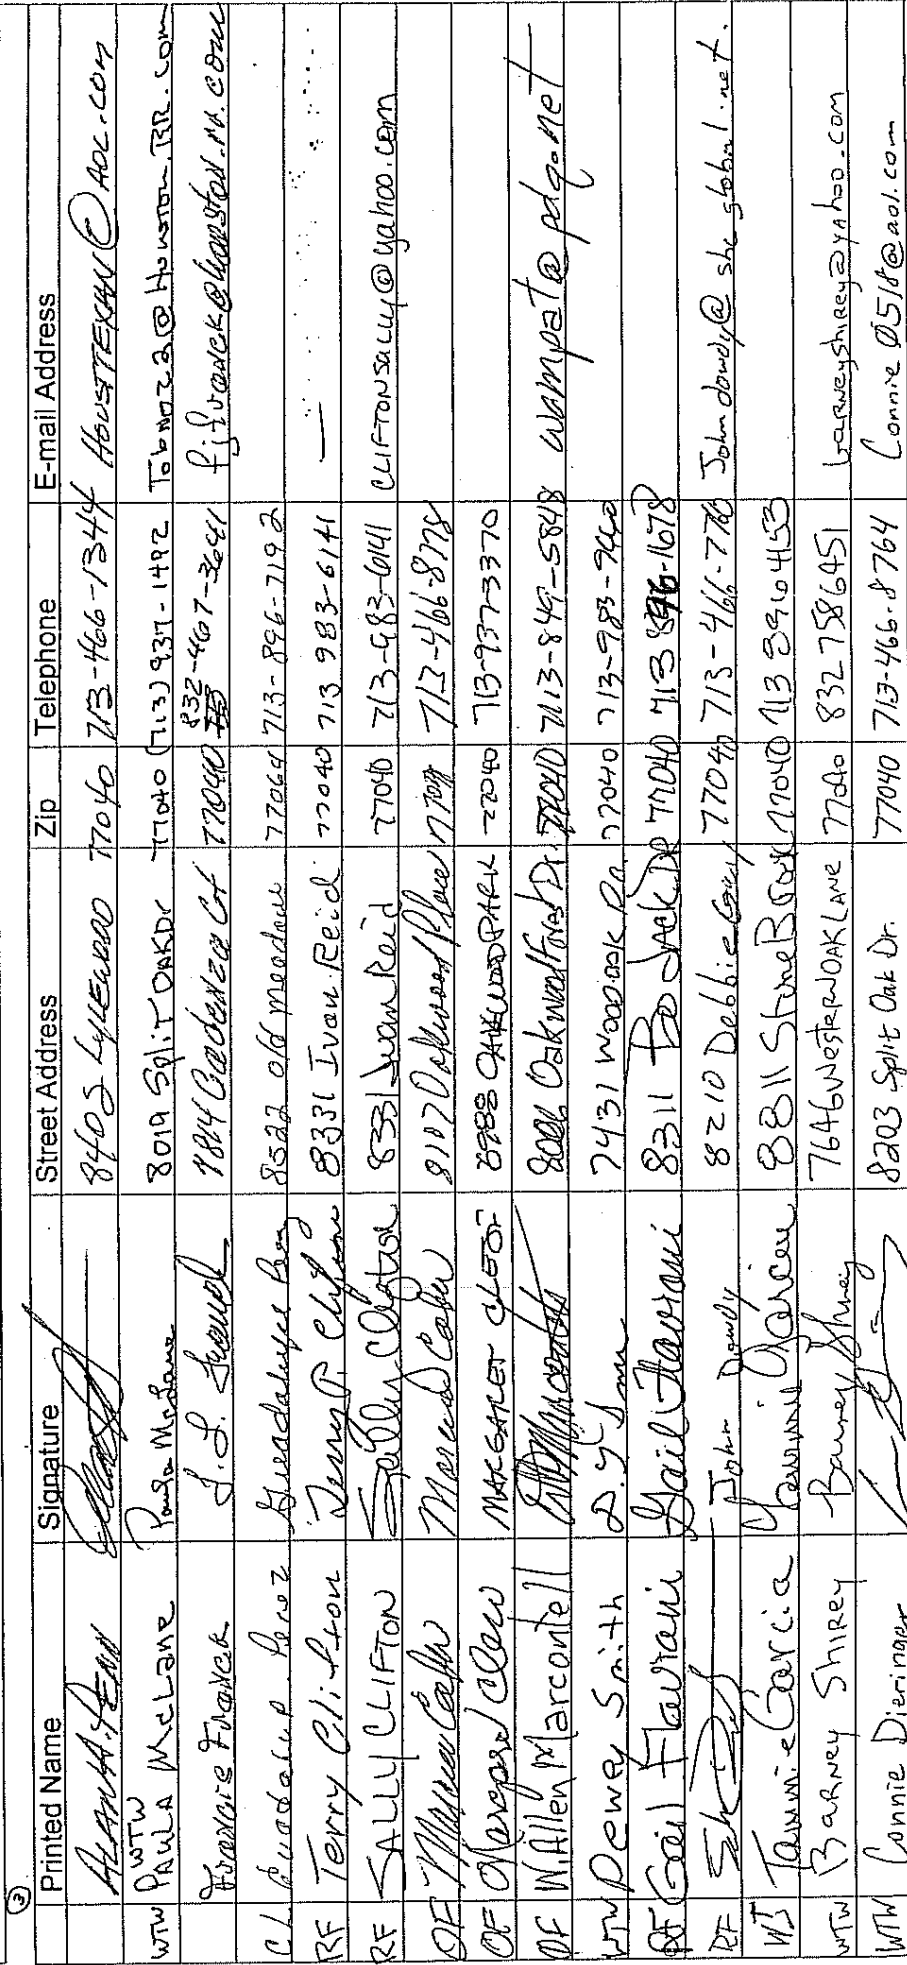 ③
Printed Name Signature Street Address Zip Telephone E-mail Address
8402 77040 713-466-1344 HOUSTTEXAN@AOL.COM
WTW PAULA McLANE Paula McLane 8019 Split OAK Dr 77040 (713) 937-1492
Francis Franck 77040 832-467-3641
CL Guadalupe Perez Guadalupe Perez 8522 old meadow 77064 713-896-7192
RF Terry Clifton Terry Clifton 8331 Ivan Reid 77040 713 983-6141 —
RF SALLY CLIFTON Sally Clifton 8331 Ivan Reid 77040 713-983-6141 CLIFTONSALLY@yahoo.com
OF 8107 Oakwood Place 713-466-8778
OF Margaret MARGARET OAKWOOD PARK 77040 713-937-3370
OF W. Allen Marcontell Oakwood Forest Dr. 77040 713-849-5848 wampat@pdq.net
WTW Dewey Smith D. Y. Smith 7431 WOODOAK DR. 77040
RF Gail Flaviani Gail Flaviani 8311 Bo Jack Dr 77040 713 896-1678
RF John Dowdy 8210 Debbie Gay 77040 713-466-7716 Johndowdy@sbcglobal.net.
WJ Tammie Garcia Tammie Garcia 8811 Stone Brook 77040 713 896 4153
WTW BARNEY SHIREY Barney Shirey 7646 WESTERN OAK LANE 77040 832 7586451 barneyshirey@yahoo.com
WTW Connie Dieringer 8203 Split Oak Dr. 77040 713-466-8764 Connie0518@aol.com